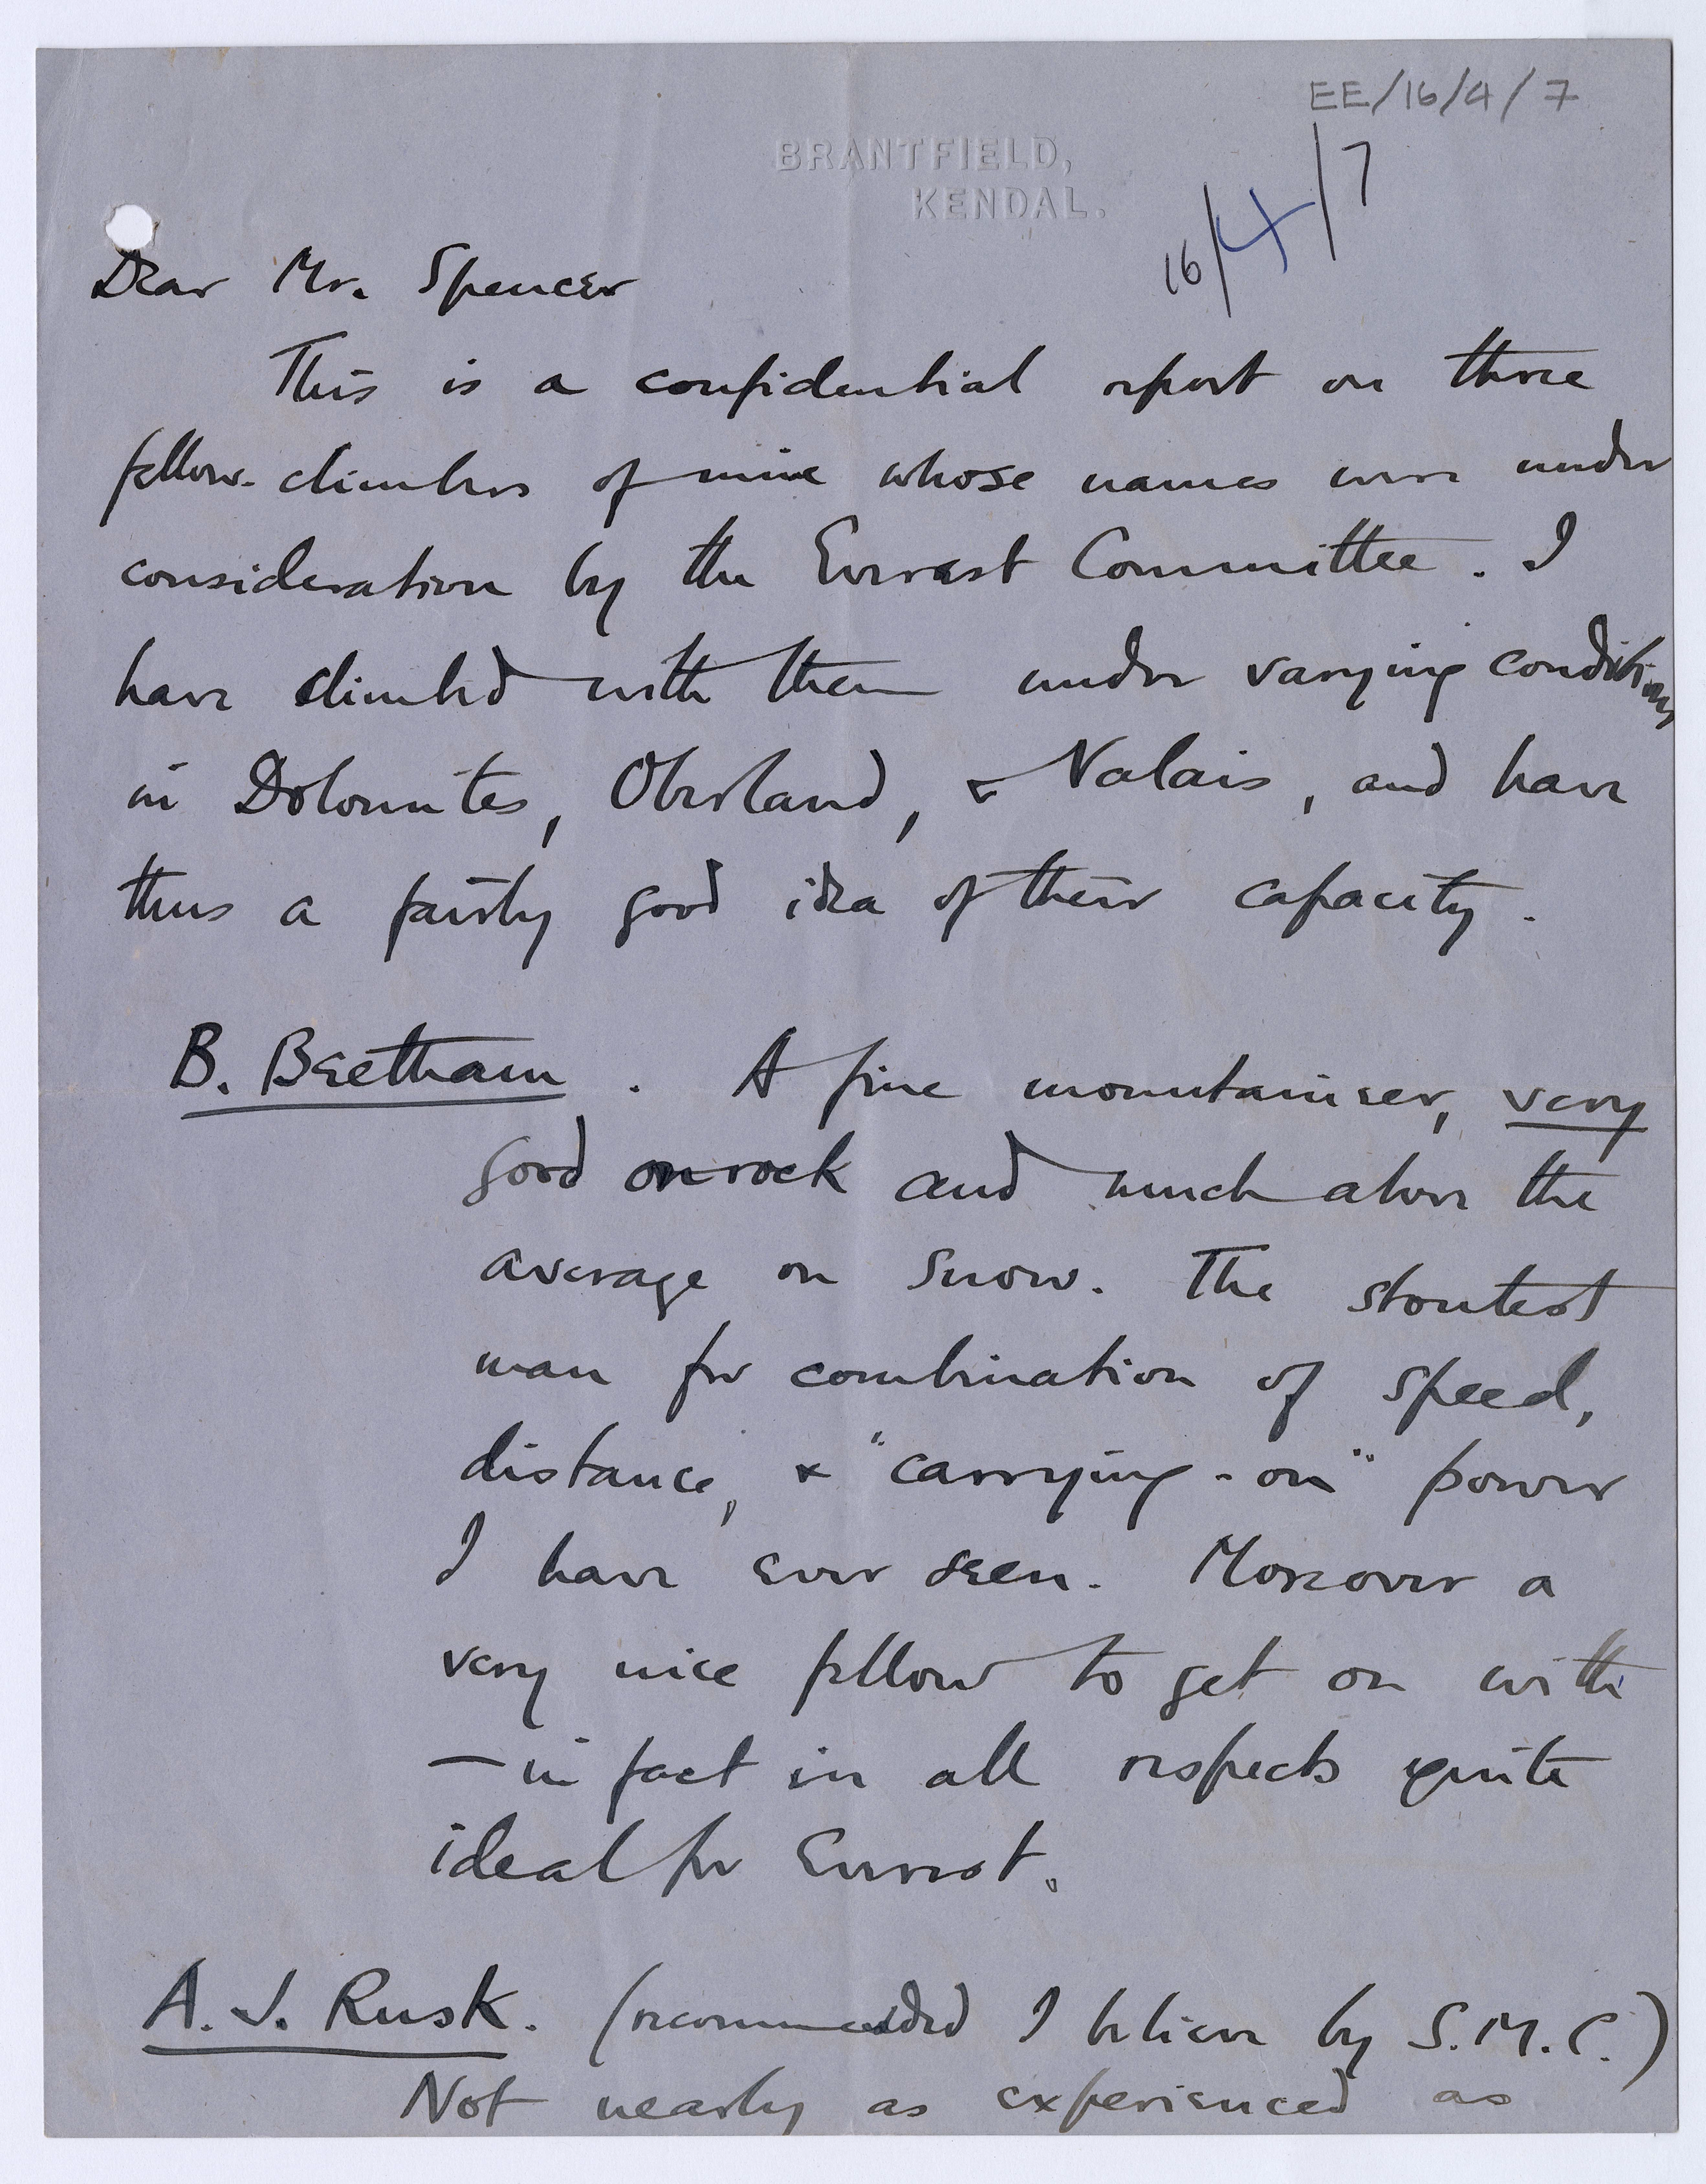 EE/16/4/7
BRANTFIELD,
KENDAL.
16/4/7
Dear Mr. Spencer
This is a confidential report on three
fellow-climbers of mine whose names were under
consideration by the Everest Committee. I
have climbed with them under varying conditions
in Dolomites, Oberland, & Valais, and have
thus a fairly good idea of their capacity.
B. Beetham. A fine mountaineer, very
good on rock and much above the
average on snow. The stoutest
man for combination of speed,
distance, & "carrying-on" power
I have ever seen. Moreover a
very nice fellow to get on with
— in fact in all respects quite
ideal for Everest.
A. J. Rusk. (recommended I believe by S.M.C.)
Not nearly as experienced as